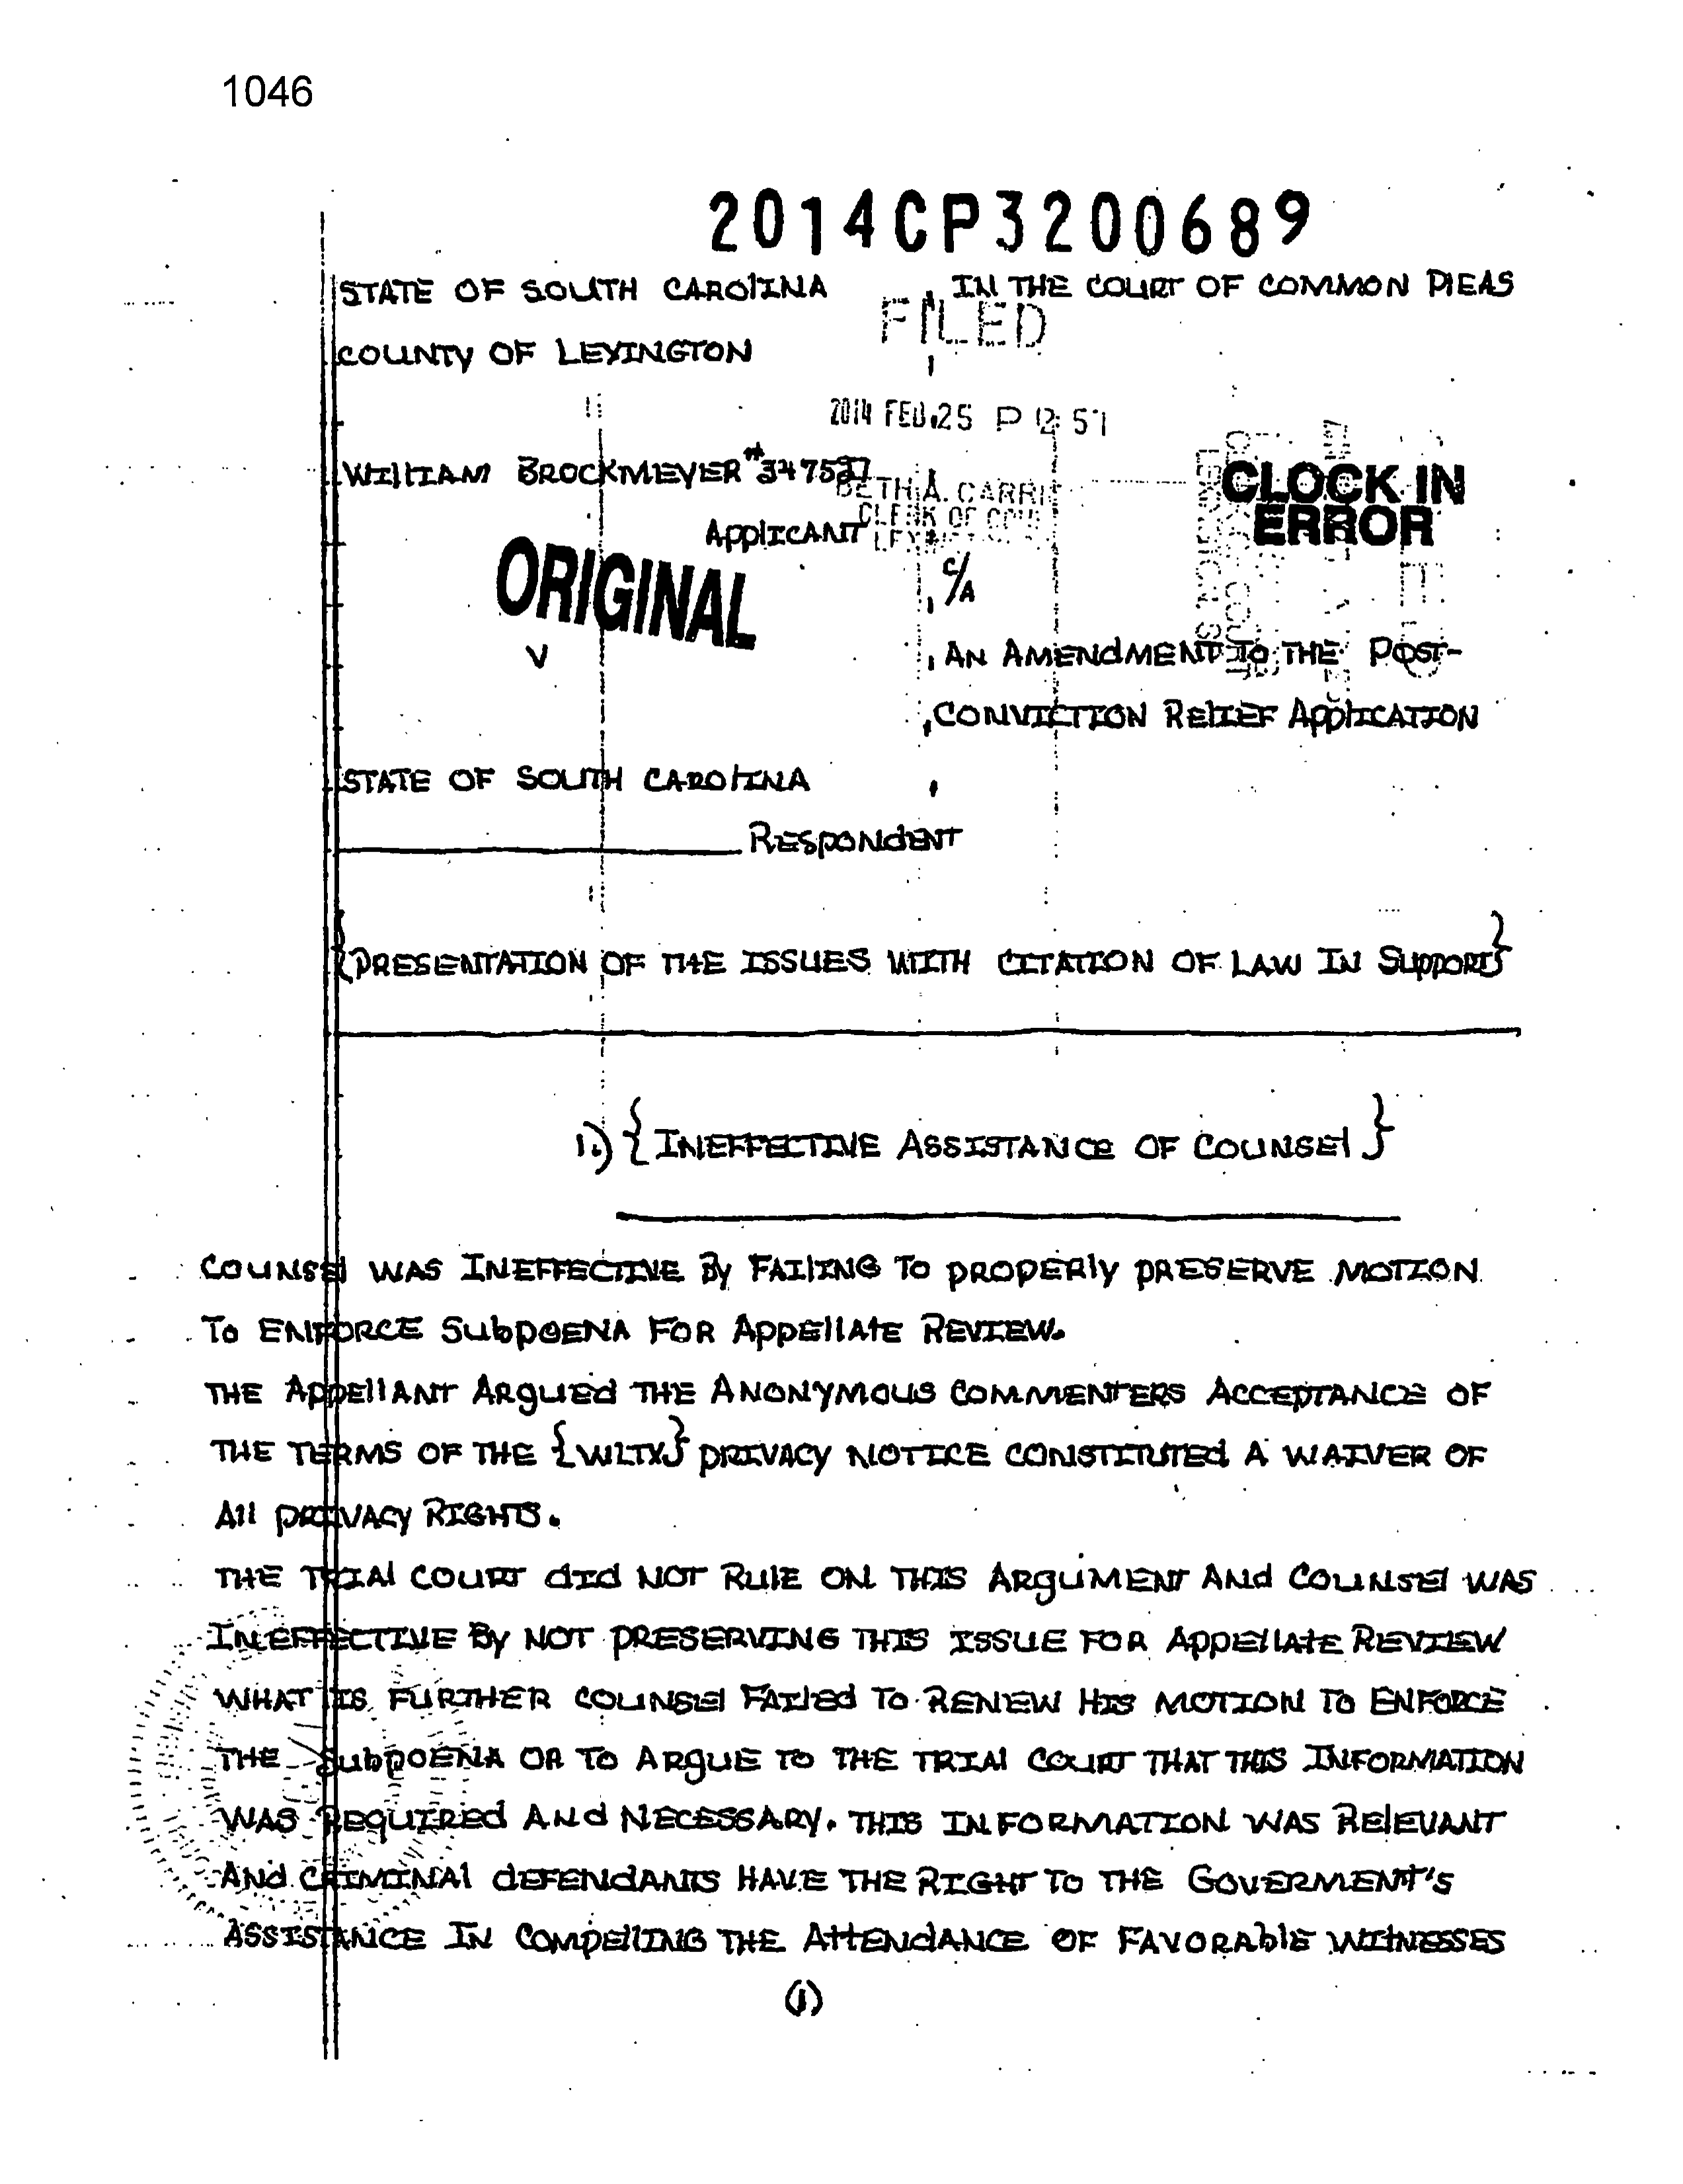 1046
2014CP3200689
STATE OF SOUTH CAROLINA , IN THE COURT OF COMMON PLEAS
FILED
COUNTY OF LEXINGTON
2014 FEB 25 P 12: 51
WILLIAM BROCKMEYER #347527
BETH A. CARRI
CLERK OF
CLOCK IN
ERROR
APPLICANT
ORIGINAL
C/A
V
, AN AMENDMENT TO THE POST-
, CONVICTION RELIEF APPLICATION
STATE OF SOUTH CAROLINA ,
RESPONDENT
{PRESENTATION OF THE ISSUES WITH CITATION OF LAW IN SUPPORT}
1.) {INEFFECTIVE ASSISTANCE OF COUNSEL}
COUNSEL WAS INEFFECTIVE BY FAILING TO PROPERLY PRESERVE MOTION
TO ENFORCE SUBPOENA FOR APPELLATE REVIEW.
THE APPELLANT ARGUED THE ANONYMOUS COMMENTERS ACCEPTANCE OF
THE TERMS OF THE {WLTX} PRIVACY NOTICE CONSTITUTED A WAIVER OF
ALL PRIVACY RIGHTS.
THE TRIAL COURT DID NOT RULE ON THIS ARGUMENT AND COUNSEL WAS
INEFFECTIVE BY NOT PRESERVING THIS ISSUE FOR APPELLATE REVIEW
WHAT IS FURTHER COUNSEL FAILED TO RENEW HIS MOTION TO ENFORCE
THE SUBPOENA OR TO ARGUE TO THE TRIAL COURT THAT THIS INFORMATION
WAS REQUIRED AND NECESSARY. THIS INFORMATION WAS RELEVANT
AND CRIMINAL DEFENDANTS HAVE THE RIGHT TO THE GOVERMENT'S
ASSISTANCE IN COMPELLING THE ATTENDANCE OF FAVORABLE WITNESSES
(1)